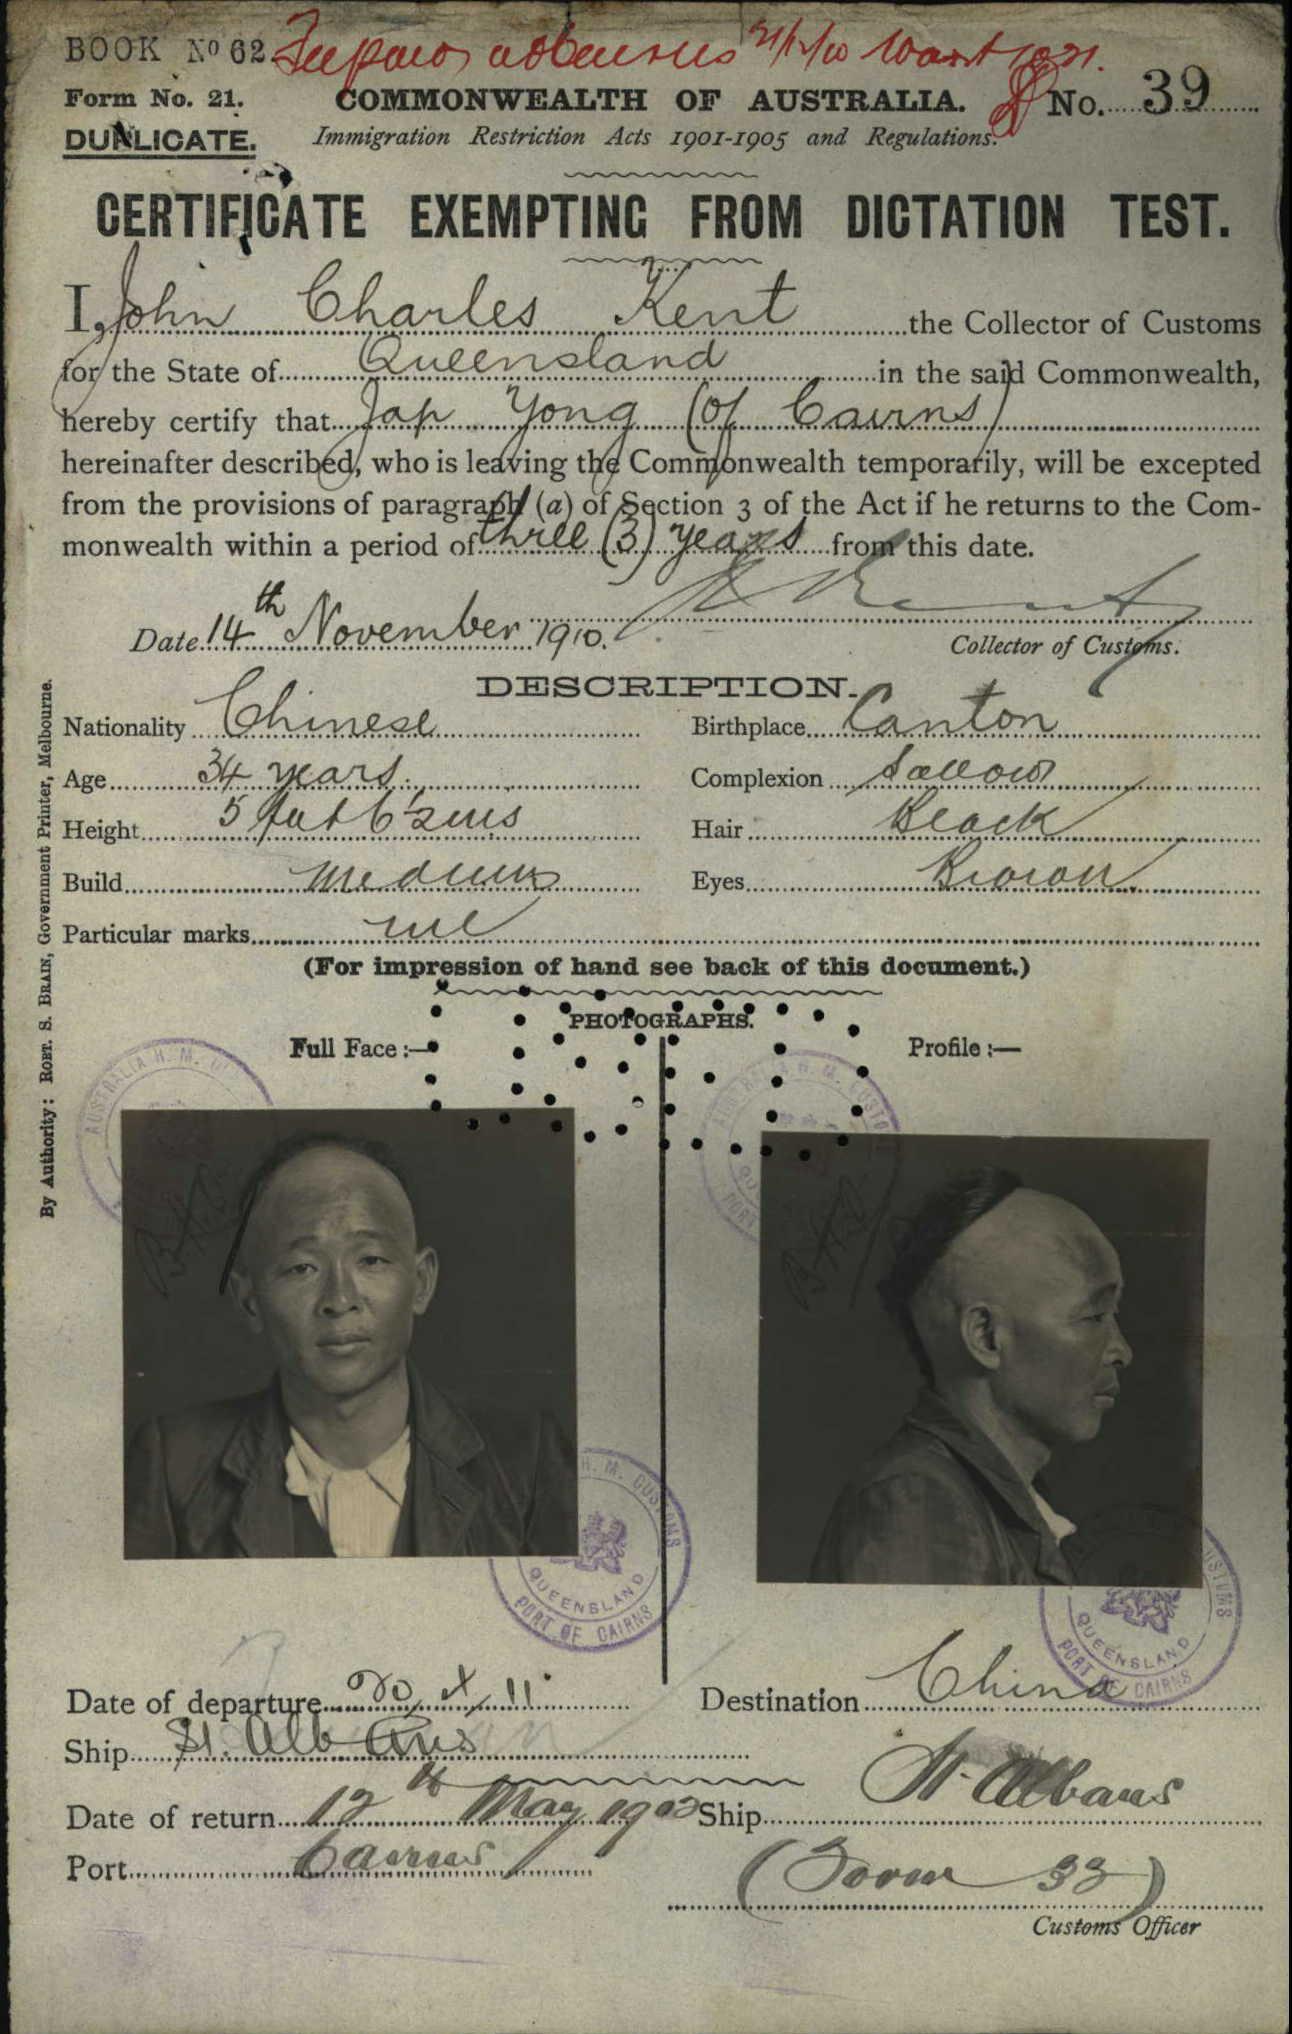 BOOK No 62
Form No. 21. COMMONWEALTH OF AUSTRALIA. No. 39
DUPLICATE. Immigration Restriction Acts 1901-1905 and Regulations.
CERTIFICATE EXEMPTING FROM DICTATION TEST.
I, John Charles Kent the Collector of Customs
for the State of Queensland in the said Commonwealth,
hereby certify that Jap Yong (of Cairns)
hereinafter described, who is leaving the Commonwealth temporarily, will be excepted
from the provisions of paragraph (a) of Section 3 of the Act if he returns to the Com-
monwealth within a period of three (3) years from this date.
Date 14th November 1910.
Collector of Customs.
DESCRIPTION.
Nationality Chinese Birthplace Canton
Age 34 years. Complexion Sallow
Height 5 feet 6½ ins Hair Black
Build Medium Eyes Brown
Particular marks nil
(For impression of hand see back of this document.)
PHOTOGRAPHS.
Full Face :— Profile :—
By Authority: ROBT. S. BRAIN, Government Printer, Melbourne.
AUSTRALIA H. M.
H. M. CUSTOMS
QUEENSLAND
PORT OF CAIRNS
QUEENSLAND
PORT OF CAIRNS
Date of departure 11 Destination China
Ship St. Albans
Date of return 12th May Ship St. Albans
Port Cairns (Form 33)
Customs Officer